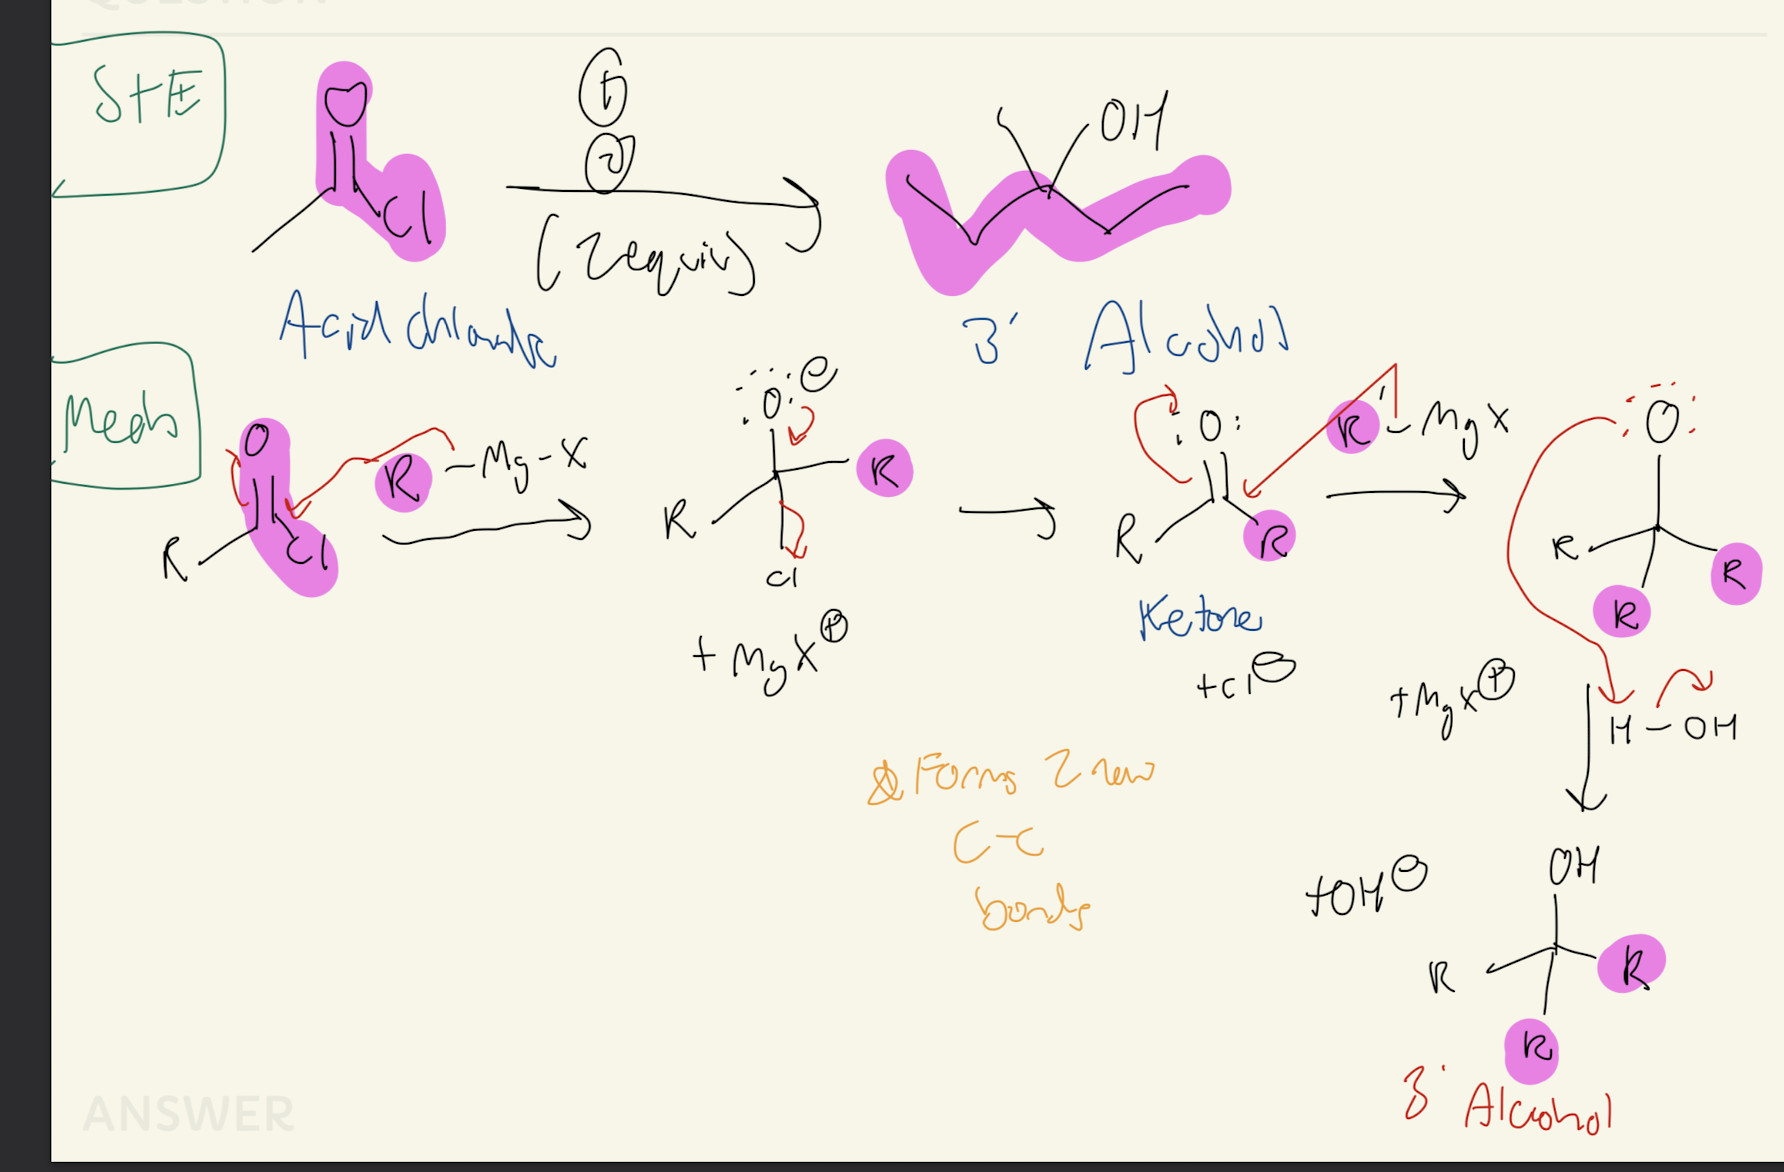 QUESTION
StE
O
Cl
①
②
(2equiv)
OH
Acid chloride
3° Alcohol
Mech
O
R
Cl
R-Mg-X
O: ⊖
R
R
Cl
+ MgX⊕
:O:
R
R
Ketone
+Cl⊖
R-MgX
:O:
R
R
R
+MgX⊕
H-OH
Forms 2 new
C-C
bonds
+OH⊖
OH
R
R
R
3° Alcohol
ANSWER